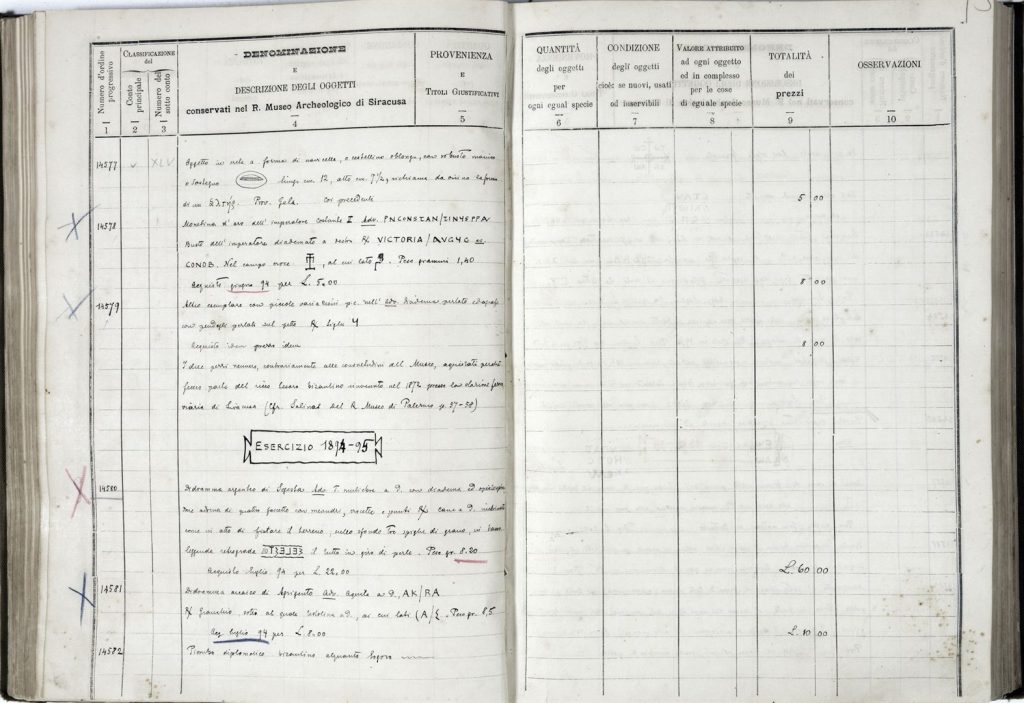 15
Numero d'ordine progressivo
CLASSIFICAZIONE del
Conto principale
Numero del sotto conto
DENOMINAZIONE
E
DESCRIZIONE DEGLI OGGETTI
conservati nel R. Museo Archeologico di Siracusa
PROVENIENZA
E
TITOLI GIUSTIFICATIVI
QUANTITÀ
degli oggetti
per
ogni egual specie
CONDIZIONE
degli oggetti
cioè: se nuovi, usati
od inservibili
VALORE ATTRIBUITO
ad ogni oggetto
od in complesso
per le cose
di eguale specie
TOTALITÀ
dei
prezzi
OSSERVAZIONI
1 2 3 4 5 6 7 8 9 10
14577 v XLV Oggetto in a forma di navicella, o cestellino oblongo, con robusto manico
e sostegno lungo cm. 12, alto cm. 7½, richiama da vicino la forma
di un Prov. Gela. Cos precedente 5 00
14578 Monetina d'oro dell'imperatore Costante II Adv. PNCONSTAN/TINYSPPA
Busto dell'imperatore diademato a destra R VICTORIA/AVGYG
CONOB. Nel campo croce , al cui lato Peso grammi 1,40
Acquisto giugno 94 per L. 5.00 8 00
14579 Altro esemplare con piccole variazioni p.e. nell' Adv. Diadema perlato
con pendagli perlati sul petto R sigla 4
Acquisto idem prezzo idem 8 00
I due pezzi vennero, contrariamente alle consuetudini del Museo, acquistati perchè
fecero parte del ricco tesoro bizantino rinvenuto nel 1872 presso la stazione ferro
viaria di Siracusa (Cfr. Salinas Del R. Museo di Palermo p. 57-58)
ESERCIZIO 1894-95
14580 Didramma argenteo di Segesta Adv. T. muliebre a D. con diadema ed
adorna di quattro con meandri, crocette e punti R Cane a D.
come in atto di fiutare il terreno, nello sfondo tre spighe di grano, vi
leggenda retrograda il tutto in giro di perle. Peso gr. 8.20
Acquisto luglio 94 per L. 22.00 L. 60 00
14581 Didramma arcaico di Agrigento Adv. Aquila a D, AK/RA
R Granchio, sotto al quale a D, ai cui lati Peso gr. 8,5
Acq. luglio 94 per L. 8.00 L. 10 00
14582 Piombo diplomatico bizantino alquanto logoro